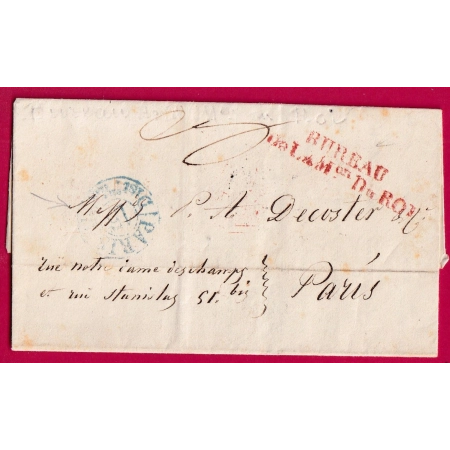 BUREAU
DE LA M on DU ROY
PARIS
Mess rs P. A. Decoster & C
rue notre dame des champs
et rue Stanislas 51. bis
Paris